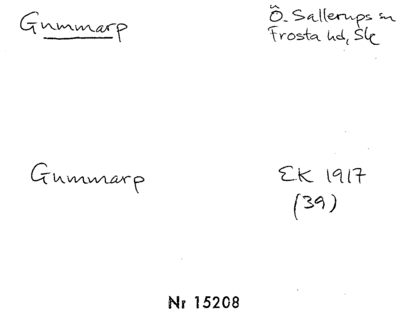 Gummarp
Ö. Sallerups sn
Frosta hd, Sk
Gummarp
EK 1917
(39)
Nr 15208